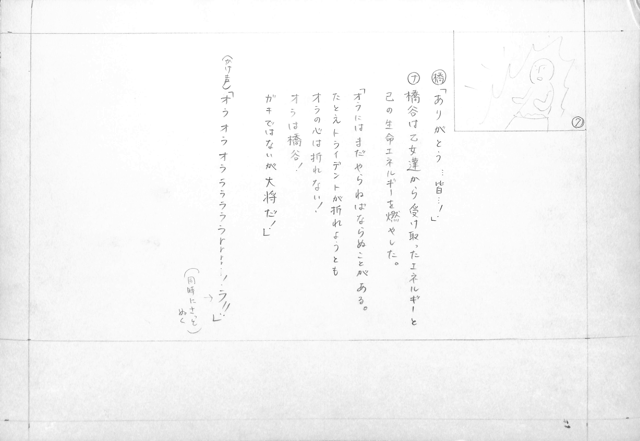 ②
橋「ありがとう…皆…!」
ナ 橋谷は乙女達から受け取ったエネルギーと
己の生命エネルギーを燃やした。
「オラにはまだやらねばならぬことがある。
たとえトライデントが折れようとも
オラの心は折れない!
オラは橋谷!
ガキではないが大将だ!」
(かけ声)「オラオラオララララララrrrr…!ラ!!」
→
(同時にさっと
ぬく)